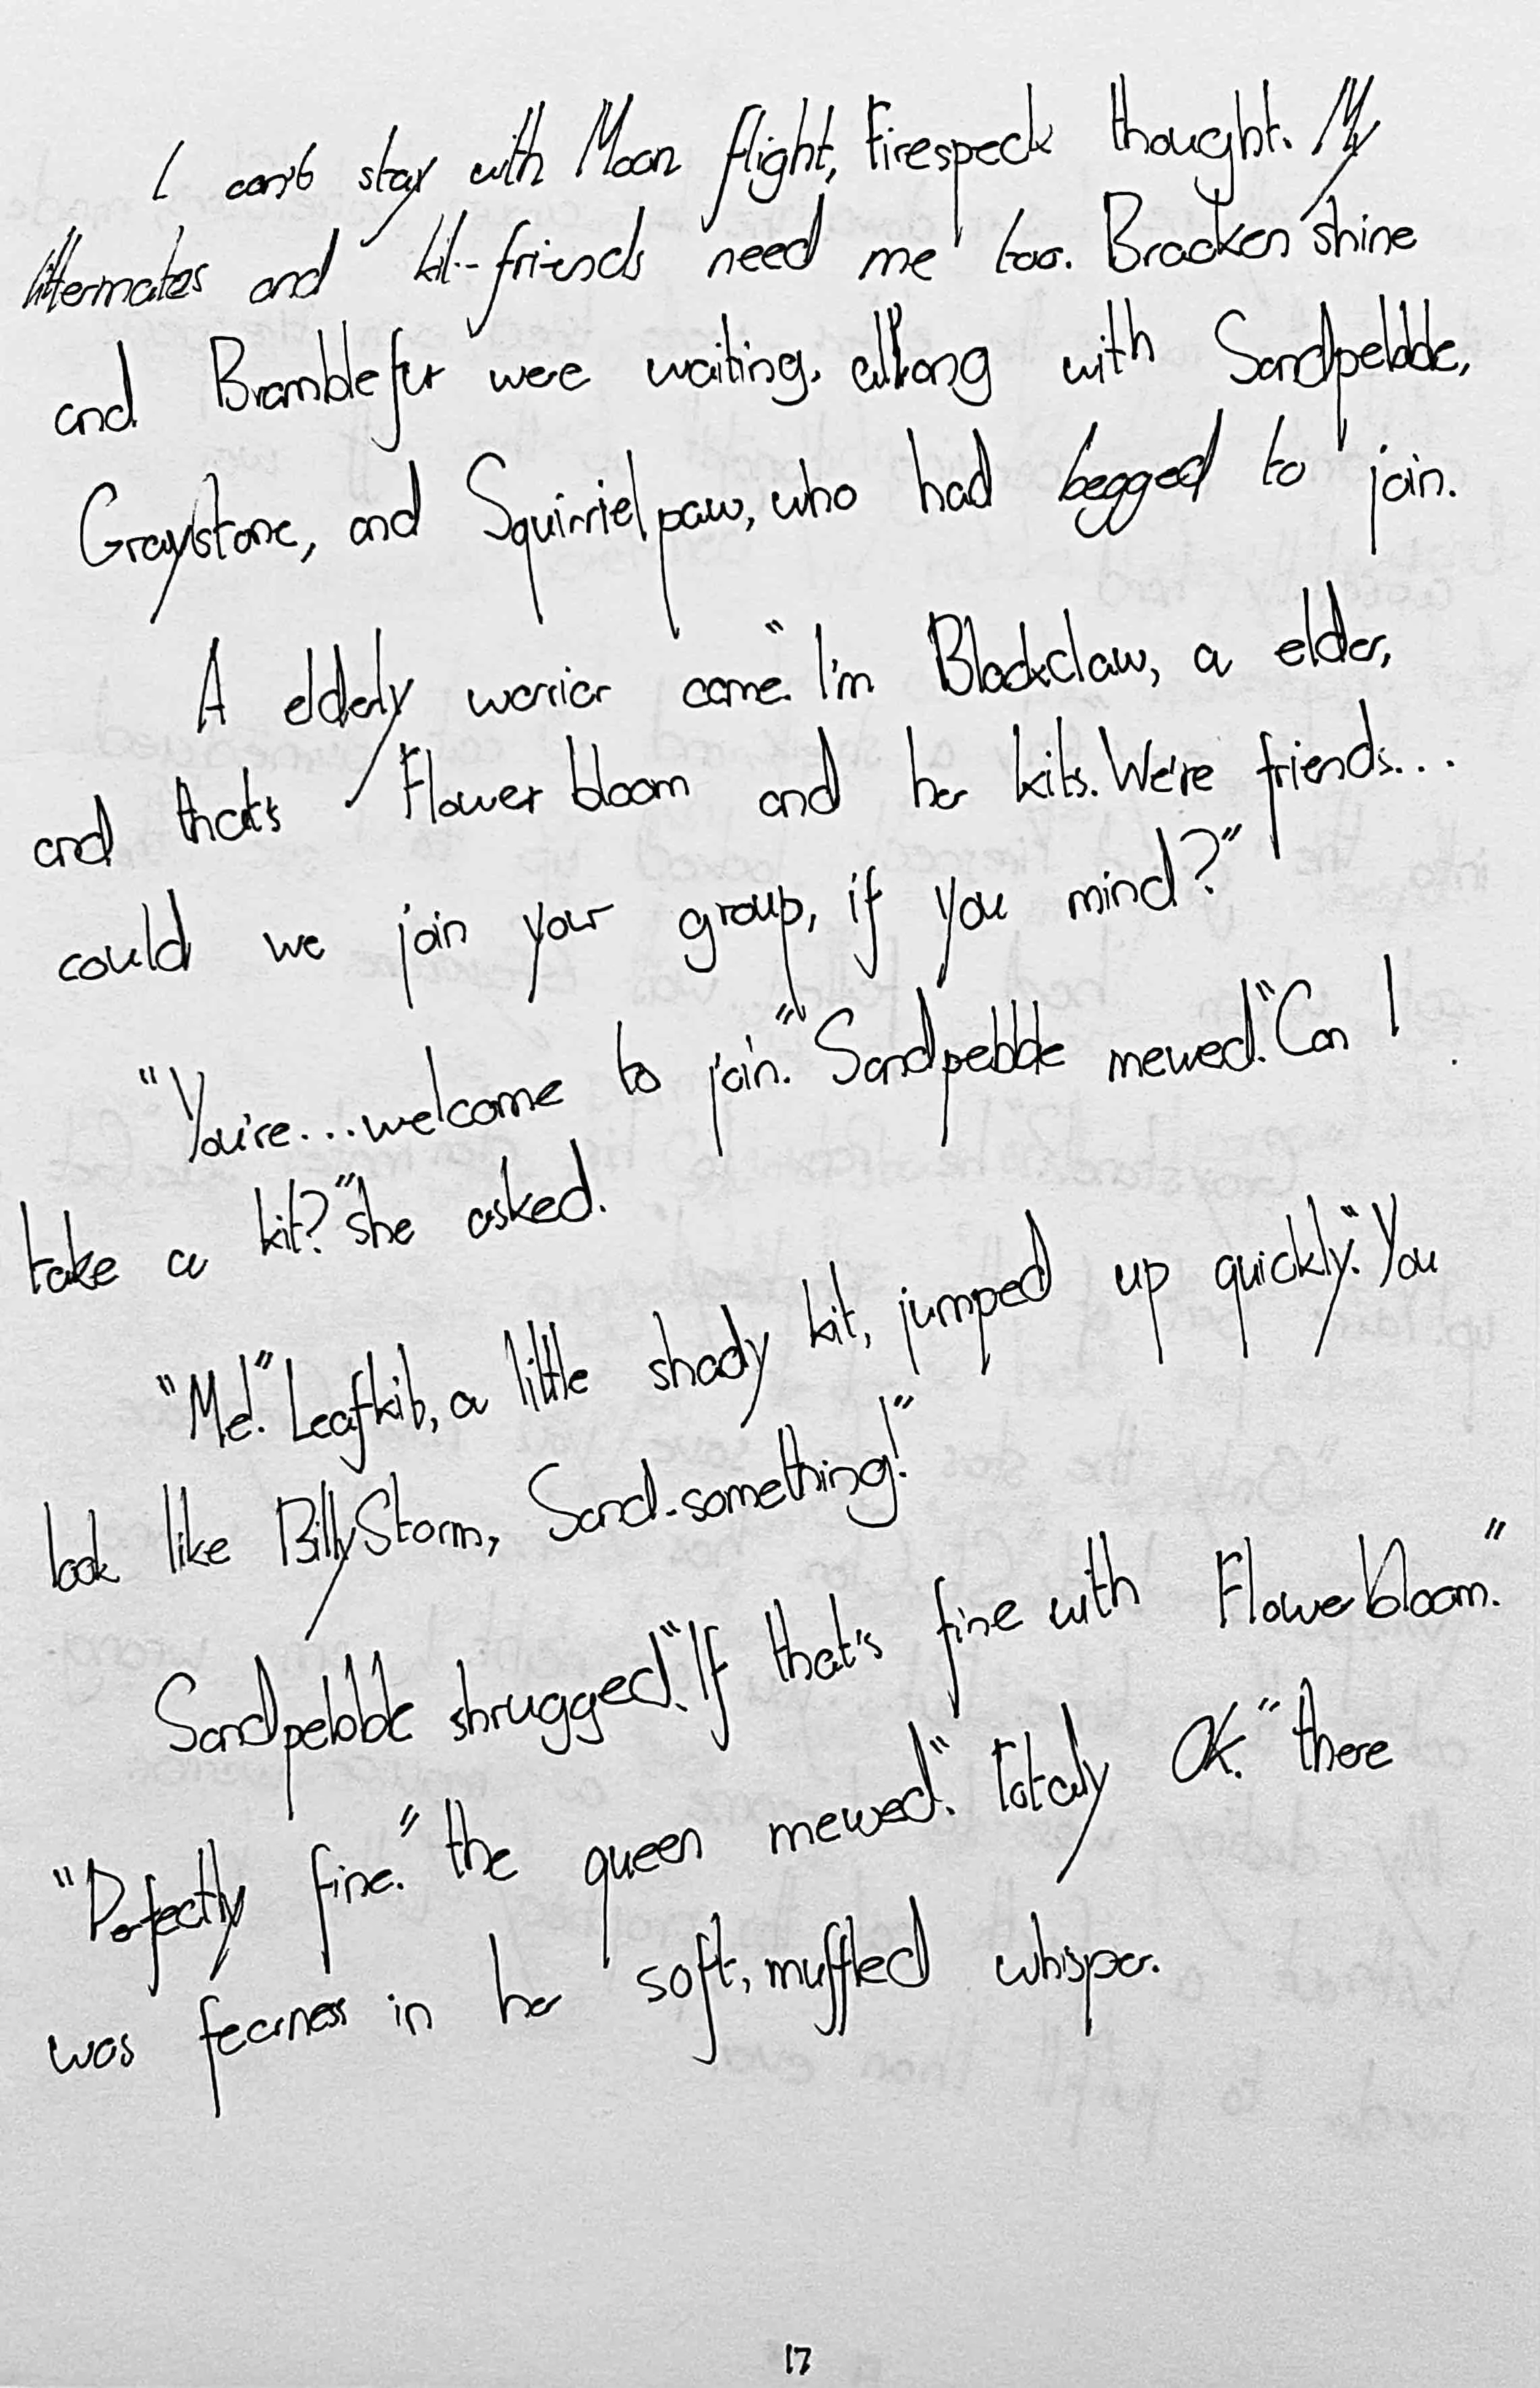 I can't stay with Moon flight, Firespeck thought. My
littermates and kit-friends need me too. Bracken shine
and Bramblefur were waiting, along with Sandpebble,
Graystone, and Squirrielpaw, who had begged to join.
A elderly warrior came. "I'm Blackclaw, a elder,
and that's Flower bloom and her kits. We're friends...
could we join your group, if you mind?"
"You're...welcome to join." Sandpebble mewed. "Can I
take a kit?" she asked.
"Me!" Leafkit, a little shady kit, jumped up quickly. "You
look like BillyStorm, Sand-something!"
Sandpebble shrugged. "If that's fine with Flowerbloom."
"Perfectly fine." the queen mewed. "Totaly OK." there
was fearness in her soft, muffled whisper.
17